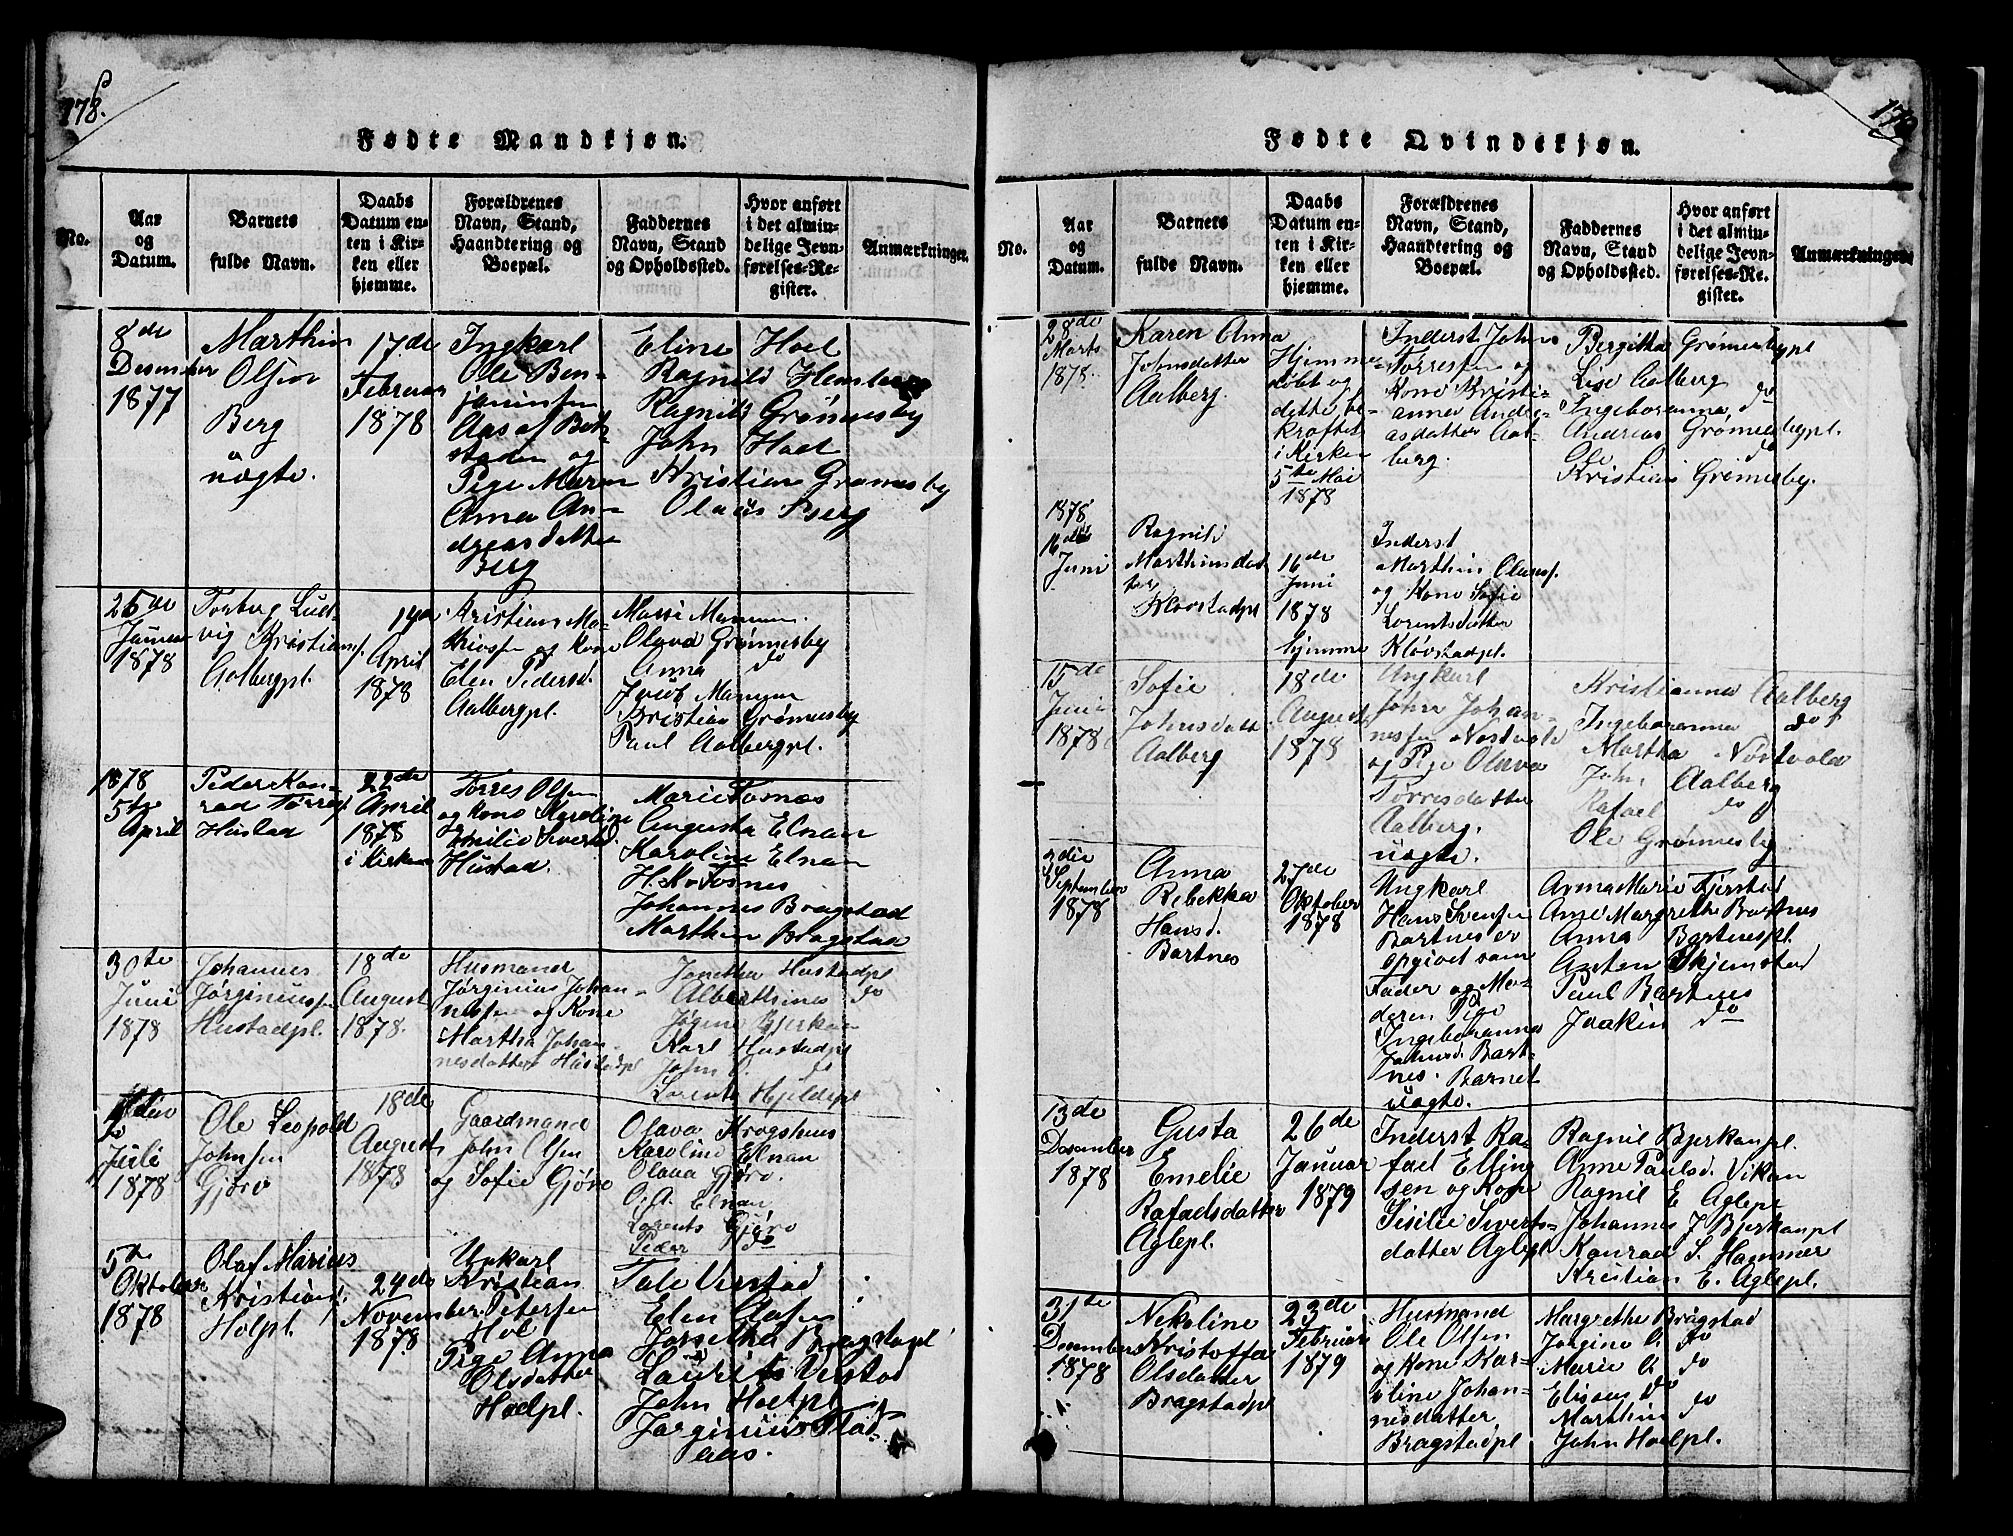 178.
Fødte Mandkjøn.
No.
Aar og Datum.
Barnets fulde Navn.
Daabs Datum enten i Kirken eller hjemme.
Forældrenes Navn, Stand, Haandtering og Boepæl.
Faddernes Navn, Stand og Opholdssted.
Hvor anført i det almindelige Jevnførelses-Register.
Anmærkninger.
8de
Desember
1877
Marthin
Olsen
Berg
uægte.
17de
Februar
1878
Ungkarl
Ole Ben-
jaminsen
Aas af Bet-
staden og
Pige Maren
Anna An-
dreasdatter
Berg
Eline Hoel
Ragnild Hemsberg
Ragnild Grønnesby
John Hoel
Kristian Grønnesby
Olaus Berg
25de
Januar
1878
Torberg Lud-
vig Kristians.
Aalbergpl.
14de
April
1878
Kristian Ma-
thiasen og Kone
Elen Pedersd.
Aalbergpl.
Massi Mamun
Olava Grønnesby
Anna do
Jacob Mamun
Kristian Grønnesby
Paul Aalbergpl.
1878
5te
April
Peder Kon-
rad Tørres.
Hustad
22de
April
1878
i Kirken
Tørres Olsen
og Kone Karoline
Emilie Sivertsd.
Hustad.
Marie Fosnæs
Augusta Elnan
Karoline Elnan
H. K. Fosnes
Johannes Bragstad
Marthin Bragstad
30te
Juni
1878
Johannes
Jørginussen
Hustadpl.
18de
August
1878.
Husmand
Jørginus Johan-
nesen og Kone
Martha Johan-
nesdatter Hustadpl
Jonetha Hustadpl
Alberthine do
Jørgine Bjerkan
Karl Hustadpl
John O. do
Lorents Hjeldepl
Juli
1878
Ole Leopold
Johnsen
Gjørv
18de
August
1878
Gaardmand
John Olsen
og Sofie Gjørv
Olava Krogshus
Karoline Elnan
Olava Gjørv.
O. A. Elnan
Lorents Gjørv
Peder do
5te
Oktober
1878
Olaf Marius
Kristians.
Holpl.
24de
November
1878
Unkarl
Kristian
Petersen
Hol
Pige Anna
Olsdatter
Hoelpl.
Tale Verstad
Elen Olsen
Jonetha Bragstadpl
Laurits Verstad
John Hoelpl
Jørginus Flat-
aas.
Fødte Qvindekjøn.
No.
Aar og Datum.
Barnets fulde Navn.
Daabs Datum enten i Kirken eller hjemme.
Forældrenes Navn, Stand, Haandtering og Boepæl.
Faddernes Navn, Stand og Opholdssted.
Hvor anført i det almindelige Jevnførelses-Register.
Anmærkninger.
28de
Marts
1878.
Karen Anna
Johnsdatter
Aalberg.
Hjemme-
døbt og
dette be-
kræftet
i Kirken
5te Mai
1878
Inderst Johns
Tørresen og
Kone Kristi-
anna Andre-
asdatter Aal-
berg.
Bergitha Grønnesbypl
Lise Aalberg
Ingeboranna do
Andreas Grønnesbypl.
Ole do
Kristian Grønnesby.
1878
16de
Juni
Ragnild
Marthinsdat-
ter
Kløvstadpl
16de
Juni
1878
hjemme
Inderst
Marthin Olaus.
og Kone Sofie
Lorentsdatter
Kløvstadpl.
15de
Juni
1878
Sofie
Johnsdatt.
Aalberg
18de
August
1878
Ungkarl
John Johan-
nessen Nøstvold
og Pige Olava
Tørresdatter
Aalberg.
uægte.
Kristianna Aalberg
Ingeboranna do
Martha Nøstvold
John Aalberg
Rafael do
Ole Grønnesby
3die
September
1878
Anna
Rebekka
Hansd.
Bartnes
27de
Oktober
1878
Ungkarl
Hans Svensen
Bartnes er
opgivet som
Fader og Mo-
deren Pige
Ingeboranna
Johnsd. Bart-
nes. Barnet
uægte.
Anna Marie Fjerstad
Ane Margrethe Bartnes
Anna Bartnespl.
Anten Skjemstad
Paul Bartnes
Joakim do
13de
Desember
1878
Gusta
Emelie
Rafaelsdatter
Aglepl.
26de
Januar
1879
Inderst Ra-
fael Elling
sen og Kone
Sisilie Siverts-
datter Aglepl
Ragnil Bjerkanpl.
Anne Paulsd. Vikan
Ragnil E Aglepl
Johannes J Bjerkanpl
Konrad S. Hammer
Kristian E. Aglepl.
31te
Desember
1878
Nekoline
Kristoffa
Olsdatter
Bragstadpl
23de
Februar
1879
Husmand
Ole Olsen
og Kone Kar-
oline Johan-
nesdatter
Bragstadpl
Margrethe Bragstad
Jørgine O. do
Marie O. do
Eliseus do
Marthin do
John Hoelpl.